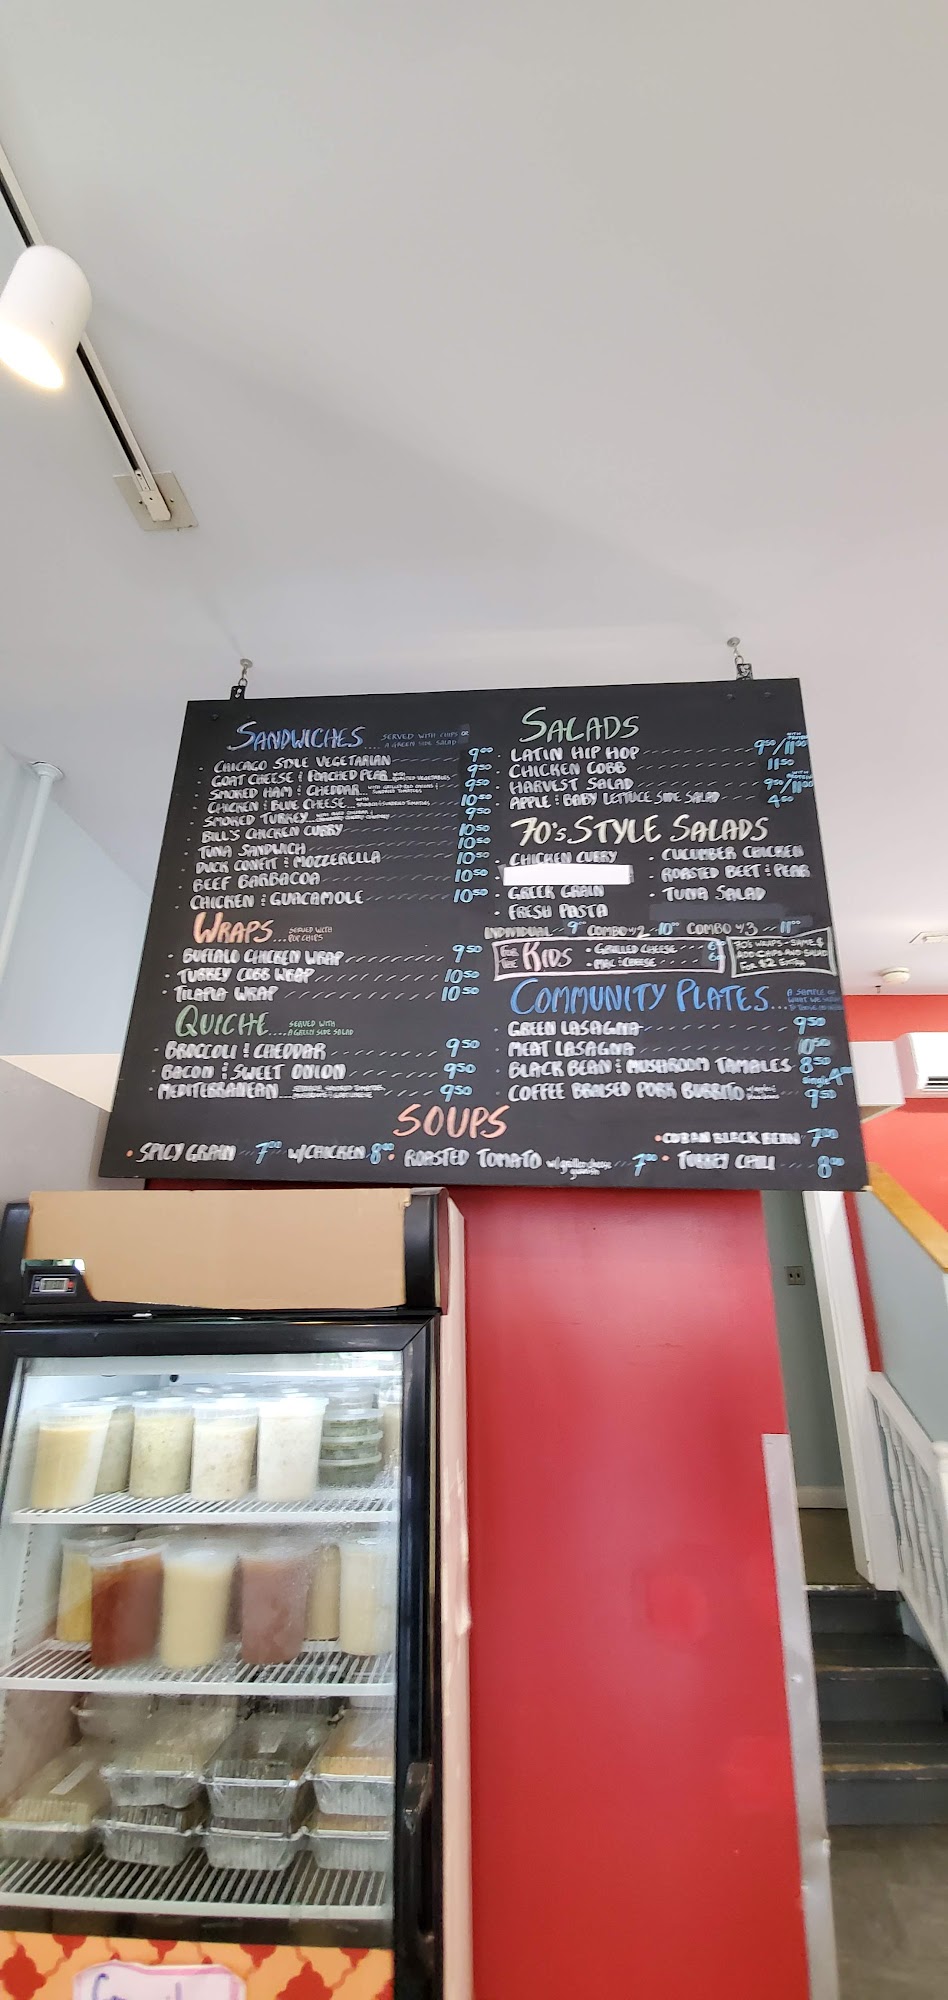 SANDWICHES ... SERVED WITH CHIPS OR A GREEN SIDE SALAD
CHICAGO STYLE VEGETARIAN 9.00
GOAT CHEESE & POACHED PEAR WITH ROASTED VEGETABLES 9.50
SMOKED HAM & CHEDDAR... WITH GRILLED RED ONIONS & SUNDRIED TOMATOES 9.50
CHICKEN & BLUE CHEESE... WITH SPINACH & SUNDRIED TOMATOES 10.50
SMOKED TURKEY 9.50
BILL'S CHICKEN CURRY 10.50
TUNA SANDWICH 10.50
DUCK CONFIT & MOZZERELLA 10.50
BEEF BARBACOA 10.50
CHICKEN & GUACAMOLE 10.50
WRAPS... SERVED WITH POP CHIPS
BUFFALO CHICKEN WRAP 9.50
TURKEY COBB WRAP 10.50
TILAPIA WRAP 10.50
QUICHE... SERVED WITH A GREEN SIDE SALAD
BROCCOLI & CHEDDAR 9.50
BACON & SWEET ONION 9.50
MEDITERRANEAN 9.50
SALADS
LATIN HIP HOP 9.50/11.00 WITH PROTEIN
CHICKEN COBB 11.50
HARVEST SALAD 9.50/11.00 WITH PROTEIN
APPLE & BABY LETTUCE SIDE SALAD 4.00
70's STYLE SALADS
CHICKEN CURRY
GREEK GRAIN
FRESH PASTA
CUCUMBER CHICKEN
ROASTED BEET & PEAR
TUNA SALAD
INDIVIDUAL 9.00 COMBO w/2 10.00 COMBO w/3 11.00
FOR THE KIDS
GRILLED CHEESE
MAC & CHEESE
70's WRAPS - SAME $
ADD CHIPS AND SALAD
FOR $2 EXTRA
COMMUNITY PLATES... A SAMPLE OF WHAT WE
GREEN LASAGNA 9.50
MEAT LASAGNA 10.50
BLACK BEAN & MUSHROOM TAMALES 8.50
single 4.00
COFFEE BRAISED PORK BURRITO 9.50
SOUPS
CUBAN BLACK BEAN 7.50
SPICY GRAIN 7.00 W/CHICKEN 8.00
ROASTED TOMATO w/ grilled cheese garnish 7.00
TURKEY CHILI 8.00